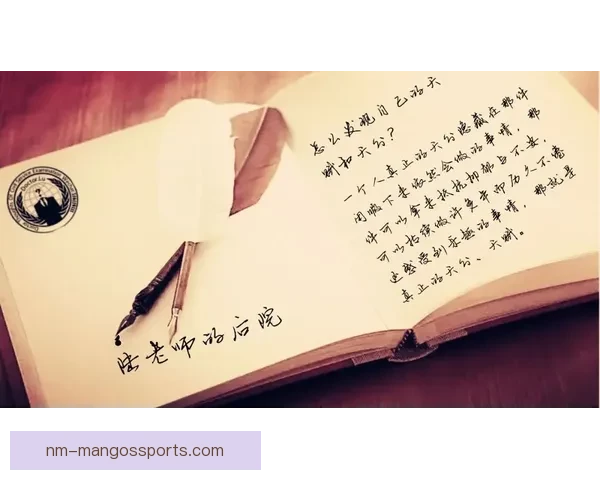 怎么发现自己的天
赋和天分?
一个人真正的天分隐藏在那件
闭嘴下来依然会做的事情,那
件可以拿来抵抗抑郁与不安,
可以持续做许多年而历久不番
还感受到乐趣的事情,那就是
真正的天分、天赋。
Doctor.Lu
陆老师的后院
nm-mangossports.com